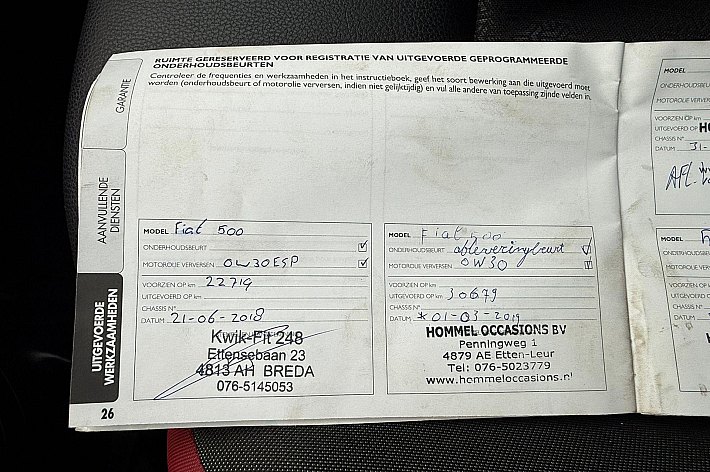 RUIMTE GERESERVEERD VOOR REGISTRATIE VAN UITGEVOERDE GEPROGRAMMEERDE
ONDERHOUDSBEURTEN
Controleer de frequenties en werkzaamheden in het instructieboek, geef het soort bewerking aan die uitgevoerd moet
worden (onderhoudsbeurt of motorolie verversen, indien niet gelijktijdig) en vul alle andere van toepassing zijnde velden in.
GARANTIE
AANVULLENDE
DIENSTEN
UITGEVOERDE
WERKZAAMHEDEN
26
MODEL Fiat 500
ONDERHOUDSBEURT
MOTOROLIE VERVERSEN 0W30 ESP
VOORZIEN OP km 22719
UITGEVOERD OP km
CHASSIS N°
DATUM 21-06-2018
Kwik-Fit 248
Ettensebaan 23
4813 AH BREDA
076-5145053
MODEL Fiat 500
ONDERHOUDSBEURT afleveringbeurt
MOTOROLIE VERVERSEN 0W30
VOORZIEN OP km
UITGEVOERD OP km 30679
CHASSIS N°
DATUM *01-03-2019
HOMMEL OCCASIONS BV
Penningweg 1
4879 AE Etten-Leur
Tel: 076-5023779
www.hommeloccasions.nl
MODEL
ONDERHOUDSBEU
MOTOROLIE VERVERS
VOORZIEN OP km
UITGEVOERD OP
CHASSIS N°
DATUM 31-
Afl.
MODEL
ONDERHOUDSBE
MOTOROLIE VER
VOORZIEN OP
UITGEVOERD
CHASSIS N°
DATUM